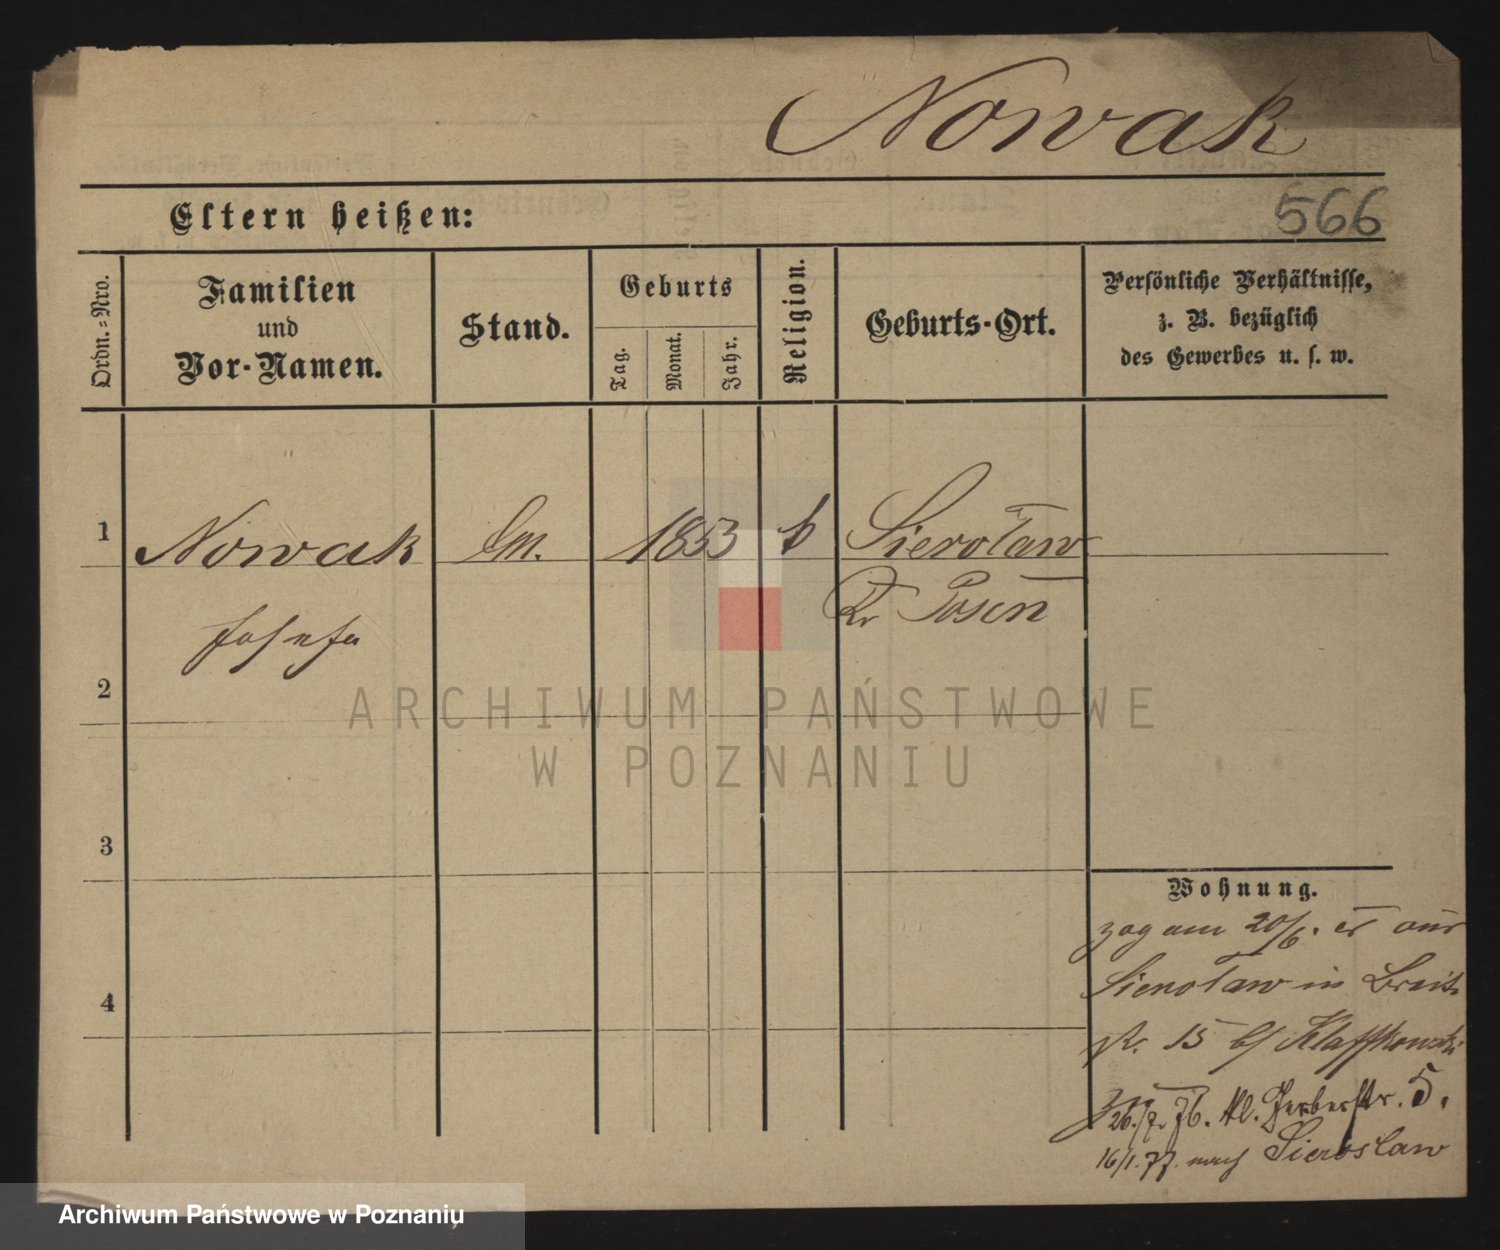 Nowak
566
Eltern heißen:
Ordn.-Nro.
Familien
und
Vor-Namen.
Stand.
Geburts
Tag.
Monat.
Jahr.
Religion.
Geburts-Ort.
Persönliche Verhältnisse,
z. B. bezüglich
des Gewerbes u. s. w.
1
Nowak
1853
k
Sierosław
Kr Posen
Josefa
2
3
4
Wohnung.
zog am 20/6. er aus
Sierosław in Breite
str. 15 b/ Klaffkowski
26./7. 76. kl. Gerberstr. 5.
16/1. 77. nach Sieroslaw
ARCHIWUM PAŃSTWOWE
W POZNANIU
Archiwum Państwowe w Poznaniu